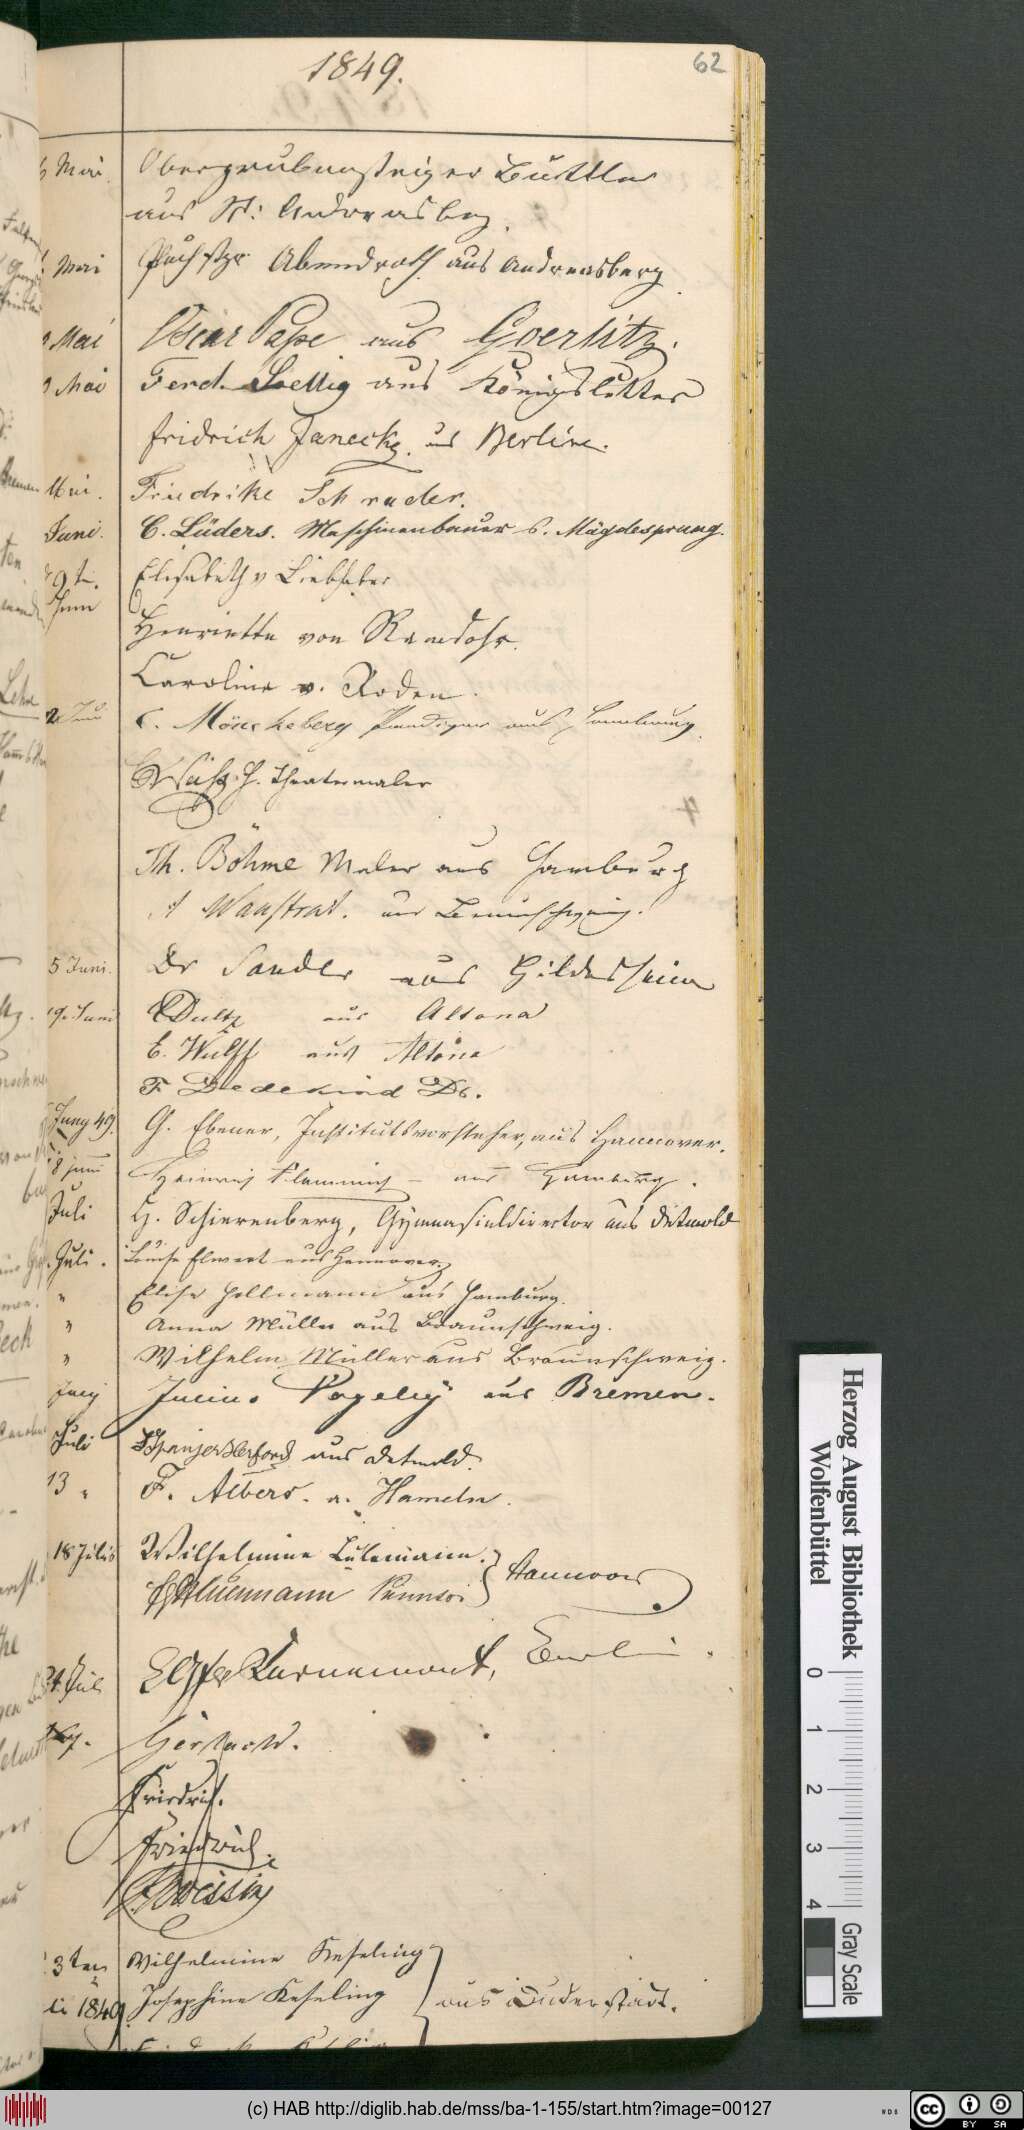 1849.
62
Mai Obergrubensteiger Buttler
aus St: Andreasberg
Mai Abendroth aus Andreasberg
Mai Oscar Pape aus Goerlitz.
Mai Ferd. aus Königslutter
Fridrich Janecke. aus Berlin.
Mai. Friedrike Schrader.
Juni. C. Lüders. Maschinenbauer b. Mägdesprung.
9t. Juni Elisabeth v Liebhaber
Henriette von Ramdohr.
Caroline v. Roden.
C. Mönckeberg aus Hamburg
Theatermaler
Th. Böhme Maler aus Hamburg
aus Braunschweig.
5 Juni. Dr Sander aus Hildesheim
19. Juni Dultz aus Altona
E. Wulff aus Altona
F Dedekind Dr.
Juny 49. G. Ebener, Institutsvorsteher, aus Hannover.
8 Juni Heinrich Flemmich - aus Hamburg.
Juli H. Schierenberg, Gymnasialdirector aus Detmold
Juli. Louise Elwert aus Hannover.
" Elise Hollmann aus Hamburg.
" Anna Müller aus Braunschweig.
" Wilhelm Müller aus Braunschweig.
Julius Vogeley aus Bremen.
Juli aus Detmold.
13 " F. Albers. a. Hameln.
18 Julius Wilhelmine Lülemann.
Hannover
Juli Berlin.
Friedrich.
Friedrich.
3ten Wilhelmine Keseling
1849. Josephine Keseling aus Duderstadt.
Herzog August Bibliothek
Wolfenbüttel
0 1 2 3 4
Gray Scale
(c) HAB http://diglib.hab.de/mss/ba-1-155/start.htm?image=00127
WDB
cc BY SA